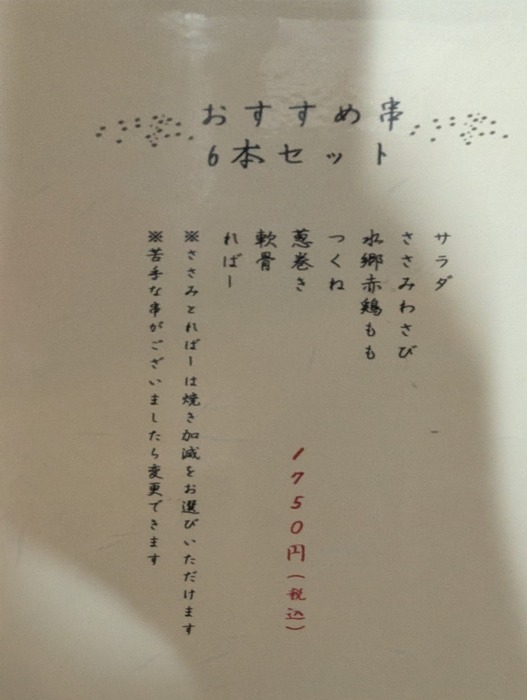 おすすめ串
6本セット
サラダ
ささみわさび
水郷赤鶏もも
つくね
葱巻き
軟骨
ればー
1750円(税込)
※ささみとればーは焼き加減をお選びいただけます
※苦手な串がございましたら変更できます